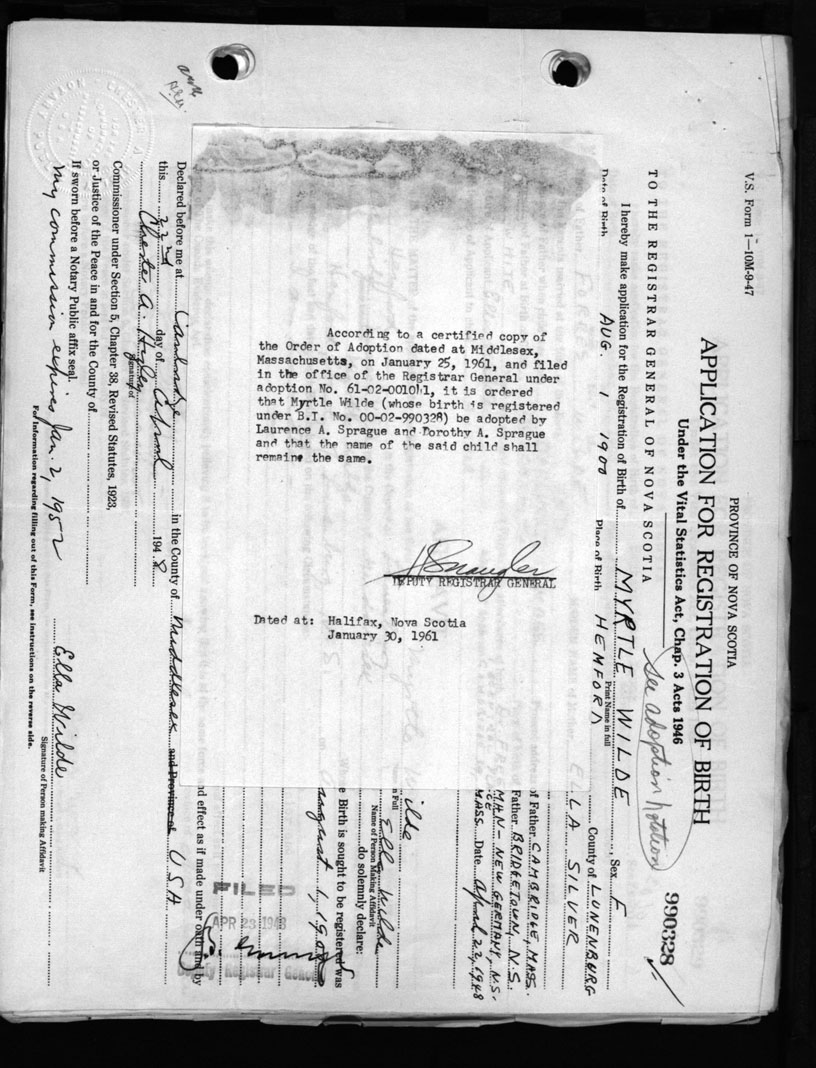 V.S. Form 1—10M-9-47
PROVINCE OF NOVA SCOTIA
APPLICATION FOR REGISTRATION OF BIRTH
Under the Vital Statistics Act, Chap. 3 Acts 1946
See adoption notation
990328
TO THE REGISTRAR GENERAL OF NOVA SCOTIA
I hereby make application for the Registration of Birth of MYRTLE WILDE, Sex F
Print Name in full
Date of Birth AUG. 1 1900 Place of Birth HEMFORD County of LUNENBURG
ELLA SILVER
of Father CAMBRIDGE, MASS.
Father BRIDGETOWN, N.S.
MAN - NEW GERMANY, N.S.
MASS. Date April 22, 1948
According to a certified copy of
the Order of Adoption dated at Middlesex,
Massachusetts, on January 25, 1961, and filed
in the office of the Registrar General under
adoption No. 61-02-001041, it is ordered
that Myrtle Wilde (whose birth is registered
under B.I. No. 00-02-990328) be adopted by
Laurence A. Sprague and Dorothy A. Sprague
and that the name of the said child shall
remain the same.
DEPUTY REGISTRAR GENERAL
Dated at: Halifax, Nova Scotia
January 30, 1961
ilde
n Full
Ella Wilde
Name of Person Making Affidavit
do solemnly declare:
e Birth is sought to be registered was
August 1, 1900
nd effect as if made under oath and by
FILED
APR 23 1948
Declared before me at Cambridge in the County of Middlesex and Province of USA
this 22nd day of April 1948
Chester A. Higley
Signature of
Commissioner under Section 5, Chapter 38, Revised Statutes, 1923,
or Justice of the Peace in and for the County of
If sworn before a Notary Public affix seal.
My commission expires Jan. 2, 1952
Ella Wilde
Signature of Person making Affidavit
For Information regarding filling out of this Form, see instructions on the reverse side.